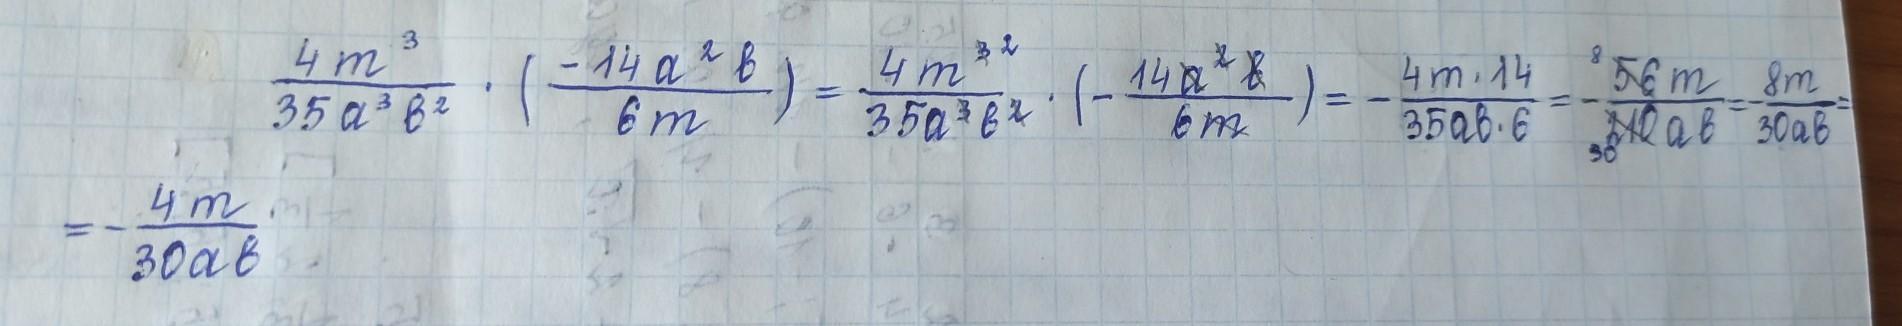 4m³/35a³b² · (-14a²b/6m) = 4m³ ²/35a³b² · (-14a²b/6m) = -4m·14/35ab·6 = -8 56m/30 210ab = -8m/30ab =
= -4m/30ab